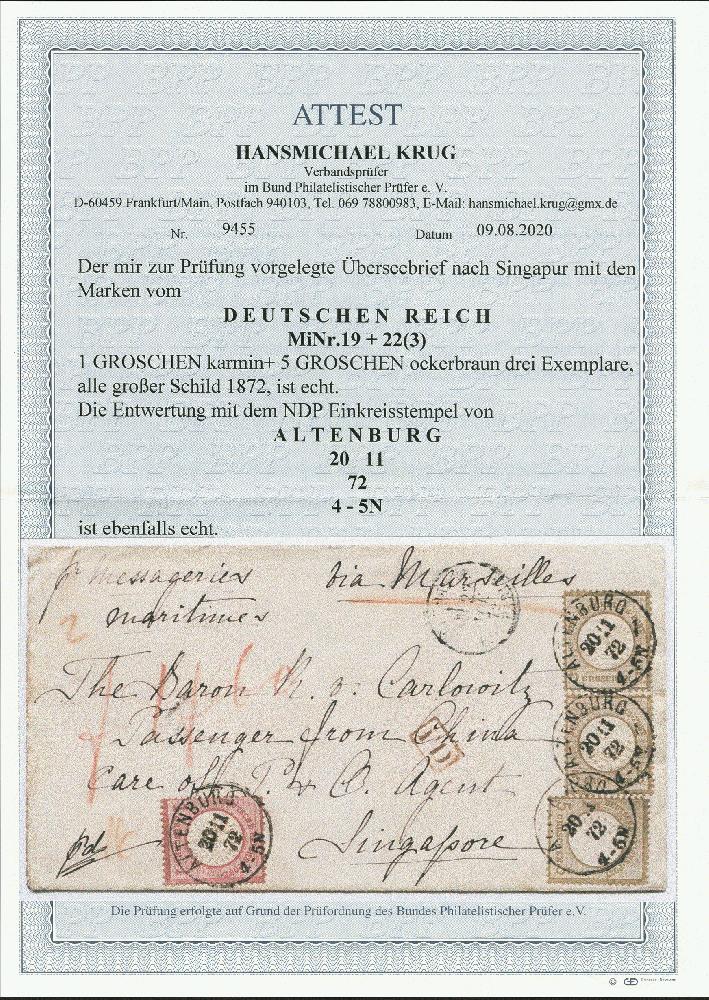 ATTEST
HANSMICHAEL KRUG
Verbandsprüfer
im Bund Philatelistischer Prüfer e. V.
D-60459 Frankfurt/Main, Postfach 940103, Tel. 069 78800983, E-Mail: hansmichael.krug@gmx.de
Nr. 9455 Datum 09.08.2020
Der mir zur Prüfung vorgelegte Überseebrief nach Singapur mit den
Marken vom
DEUTSCHEN REICH
MiNr.19 + 22(3)
1 GROSCHEN karmin+ 5 GROSCHEN ockerbraun drei Exemplare,
alle großer Schild 1872, ist echt.
Die Entwertung mit dem NDP Einkreisstempel von
ALTENBURG
20 11
72
4 - 5N
ist ebenfalls echt.
pr Messageries via Marseilles
maritimes
ALTENBURG
20 11
72
4-5N
The Baron R. v. Carlowitz
Passenger from China
ALTENBURG
20 11
72
4-5N
PD
care of P. & O. Agent
ALTENBURG
20 11
72
4-5N
20
72
4-5N
Singapore
pd
Die Prüfung erfolgte auf Grund der Prüfordnung des Bundes Philatelistischer Prüfer e.V.